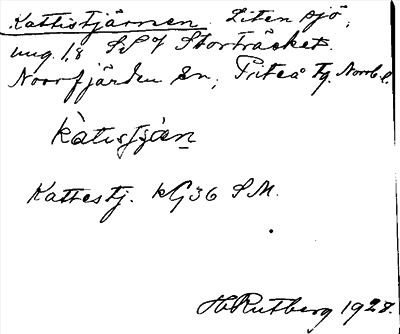 Kattistjärnen. Liten sjö,
ung. 1,8 SSV Storträsket.
Norrfjärden Sn, Piteå Tg. Norrb. l.
kàtistjǻn
Kattestj. kG36 S M.
H Rutberg 1927.